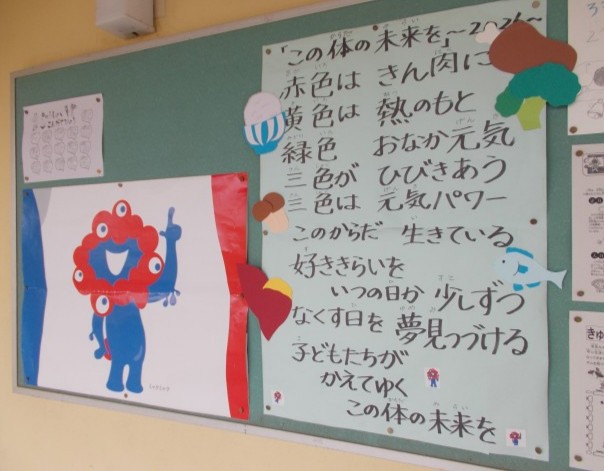 「この体の未来を」～2024～
赤色は きん肉に
黄色は 熱のもと
緑色 おなか元気
三色が ひびきあう
三色は 元気パワー
このからだ 生きている
好ききらいを
いつの日か 少しずつ
なくす日を 夢見つづける
子どもたちが
かえてゆく
この体の未来を